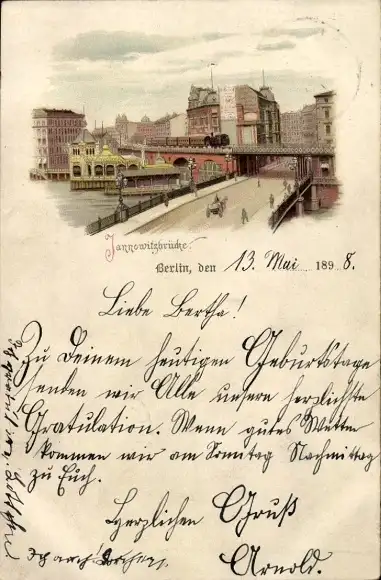 Jannowitzbrücke.
Berlin, den 13. Mai 1898.
Liebe Bertha!
Zu Deinem heutigen Geburtstage
senden wir Alle unsere herzlichste
Gratulation. Wenn gutes Wetter
kommen wir am Sonntag Nachmittag
zu Euch.
Herzlichen Gruß
Arnold.